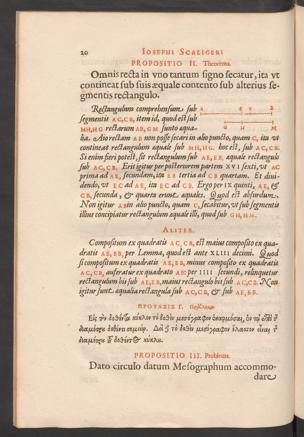 20 IOSEPHI SCALIGERI
PROPOSITIO II. Theorema.
Omnis recta in vno tantum signo secatur, ita vt
contineat sub suis æquale contento sub alterius se-
gmentis rectangulo.
Rectangulum comprehensum sub
segmentis AC, CB, item id, quod est sub
MH, HG rectarum AB, GM junto æqua-
lia. Aio rectam AB non posse secari in alio puncto, quam C, ita vt
contineat rectangulum æquale sub MH, HG. hoc est, sub AC, CB.
Si enim fieri potest, sit rectangulum sub AE, EB, æquale rectangulo
sub AC, CB. Erit igitur per posteriorem partem XVI sexti, vt AC
prima ad AE, secundam, ita EB tertia ad CB quartam. Et diui-
dendo, vt EC ad AE, ita EC ad CB. Ergo per IX quinti, AE, &
CB, secunda, & quarta erunt æquales. Quod est absurdum.
Non igitur AB in alio puncto, quam C, secabitur, vt sub segmentis
illius concipiatur rectangulum æquale illi, quod sub GH, HM.
ALITER.
Compositum ex quadratis AC, CB, est maius composito ex qua-
dratis AE, EB, per Lemma, quod est ante XLIII decimi. Quod
si compositum ex quadratis AE, EB, minus composito ex quadratis
AC, CB, auferatur ex quadrato AB: per IIII secundi, relinquetur
rectangulum bis sub AE, EB, maius rectangulo bis sub AC, CB. Non
igitur sunt æqualia rectangula sub AC, CB, & sub AE, EB.
ΠΡΟΤΑΣΙΣ Γ.
PROPOSITIO III. Problema.
Dato circulo datum Mesographum accommo-
dare.